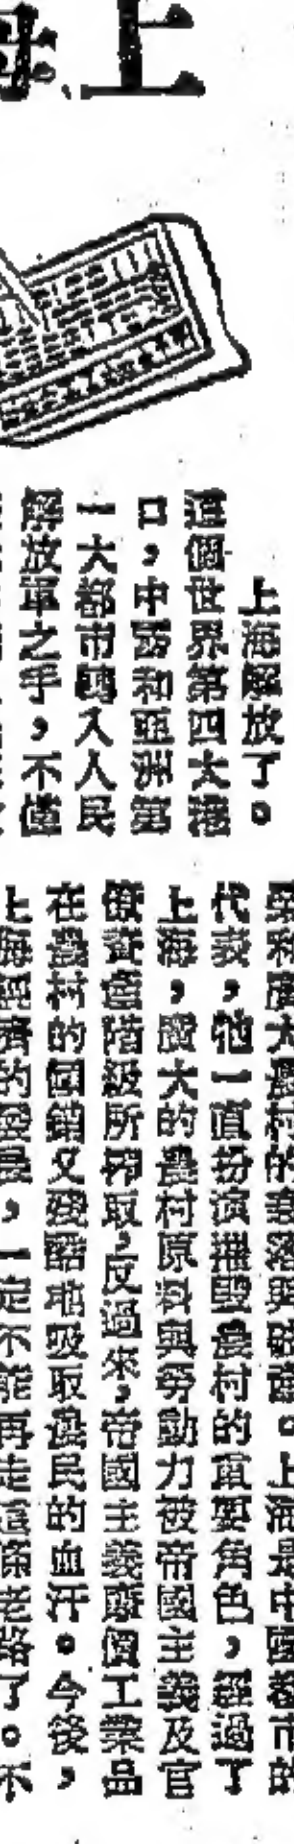 上海
上海解放了。
這個世界第四大港
口，中國和亞洲第
一大都市歸入人民
解放軍之手，不僅
和廣大農村的衰落與破產。上海是中國都市的
代表，牠一直扮演摧毀農村的重要角色，經過了
上海，廣大的農村原料與勞動力被帝國主義及官
僚資產階級所搾取，反過來，帝國主義廢價工業品
在農村的傾銷又殘酷地吸取農民的血汗。今後，
上海經濟的發展，一定不能再走這條老路了。不